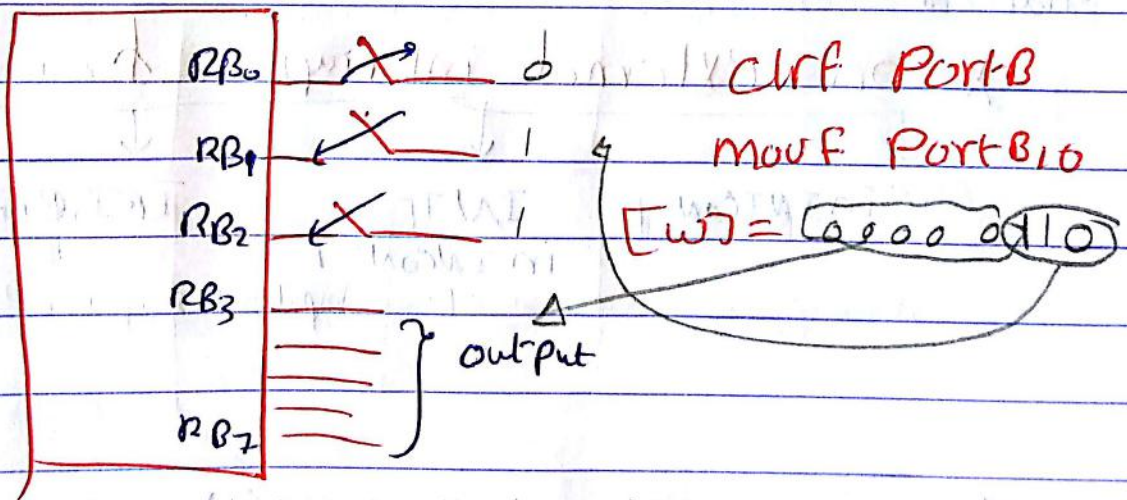 RB0 0 clrf PortB
RB1 1 movf PortB,0
RB2 1 [W] = 00000110
RB3
output
RB7